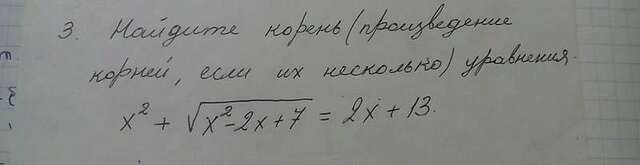 3. Найдите корень (произведение
корней, если их несколько) уравнения.
x² + √(x²-2x+7) = 2x + 13.